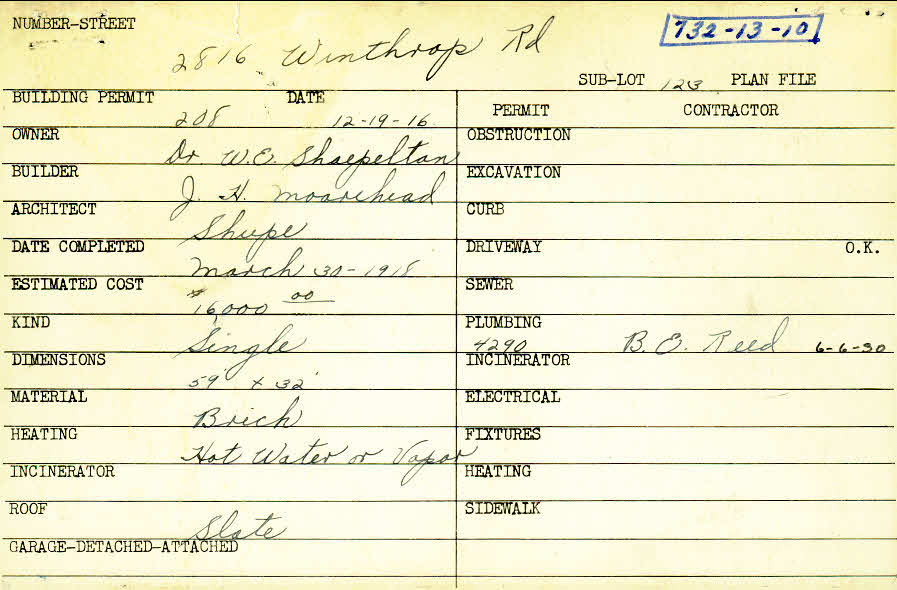 NUMBER-STREET
732-13-10
2816 Winthrop Rd
SUB-LOT 123 PLAN FILE
BUILDING PERMIT DATE
208 12-19-16
OWNER
Dr. W.E.
BUILDER
J. H. Moorehead
ARCHITECT
Shupe
DATE COMPLETED
March 30-1918
ESTIMATED COST
$16,000 00
KIND
Single
DIMENSIONS
59' x 32'
MATERIAL
Brick
HEATING
Hot Water or Vapor
INCINERATOR
ROOF
Slate
GARAGE-DETACHED-ATTACHED
PERMIT CONTRACTOR
OBSTRUCTION
EXCAVATION
CURB
DRIVEWAY O.K.
SEWER
PLUMBING
4290 B.E. Reed 6-6-30
INCINERATOR
ELECTRICAL
FIXTURES
HEATING
SIDEWALK